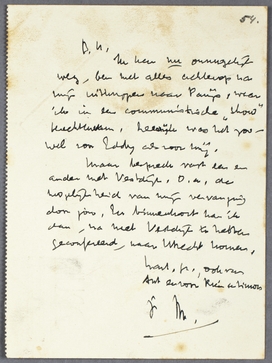 54.
B. H.
Ik kan nu onmogelijk
weg, ben met alles achterop na
mijn uitknijpen naar Parijs, waar
ik in een communistische "show"
terechtkwam, heerlijk was het zo-
wel voor Eddy als voor mij.
Maar bespreek vast een en
ander met Vestdijk, o.a. de
mogelijkheid van mijn vervanging
door jou. In binnenkort kan ik
dan, na met Vestdijk te hebben
geconfereerd, naar Utrecht komen.
hart. gr., ook van
Ant en voor Rein en Simons